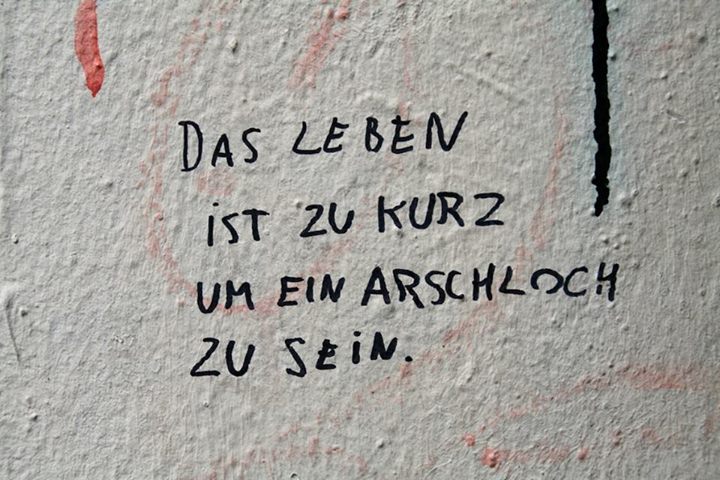 DAS LEBEN
iST ZU KURZ
UM EIN ARSCHLOCH
ZU SEiN.